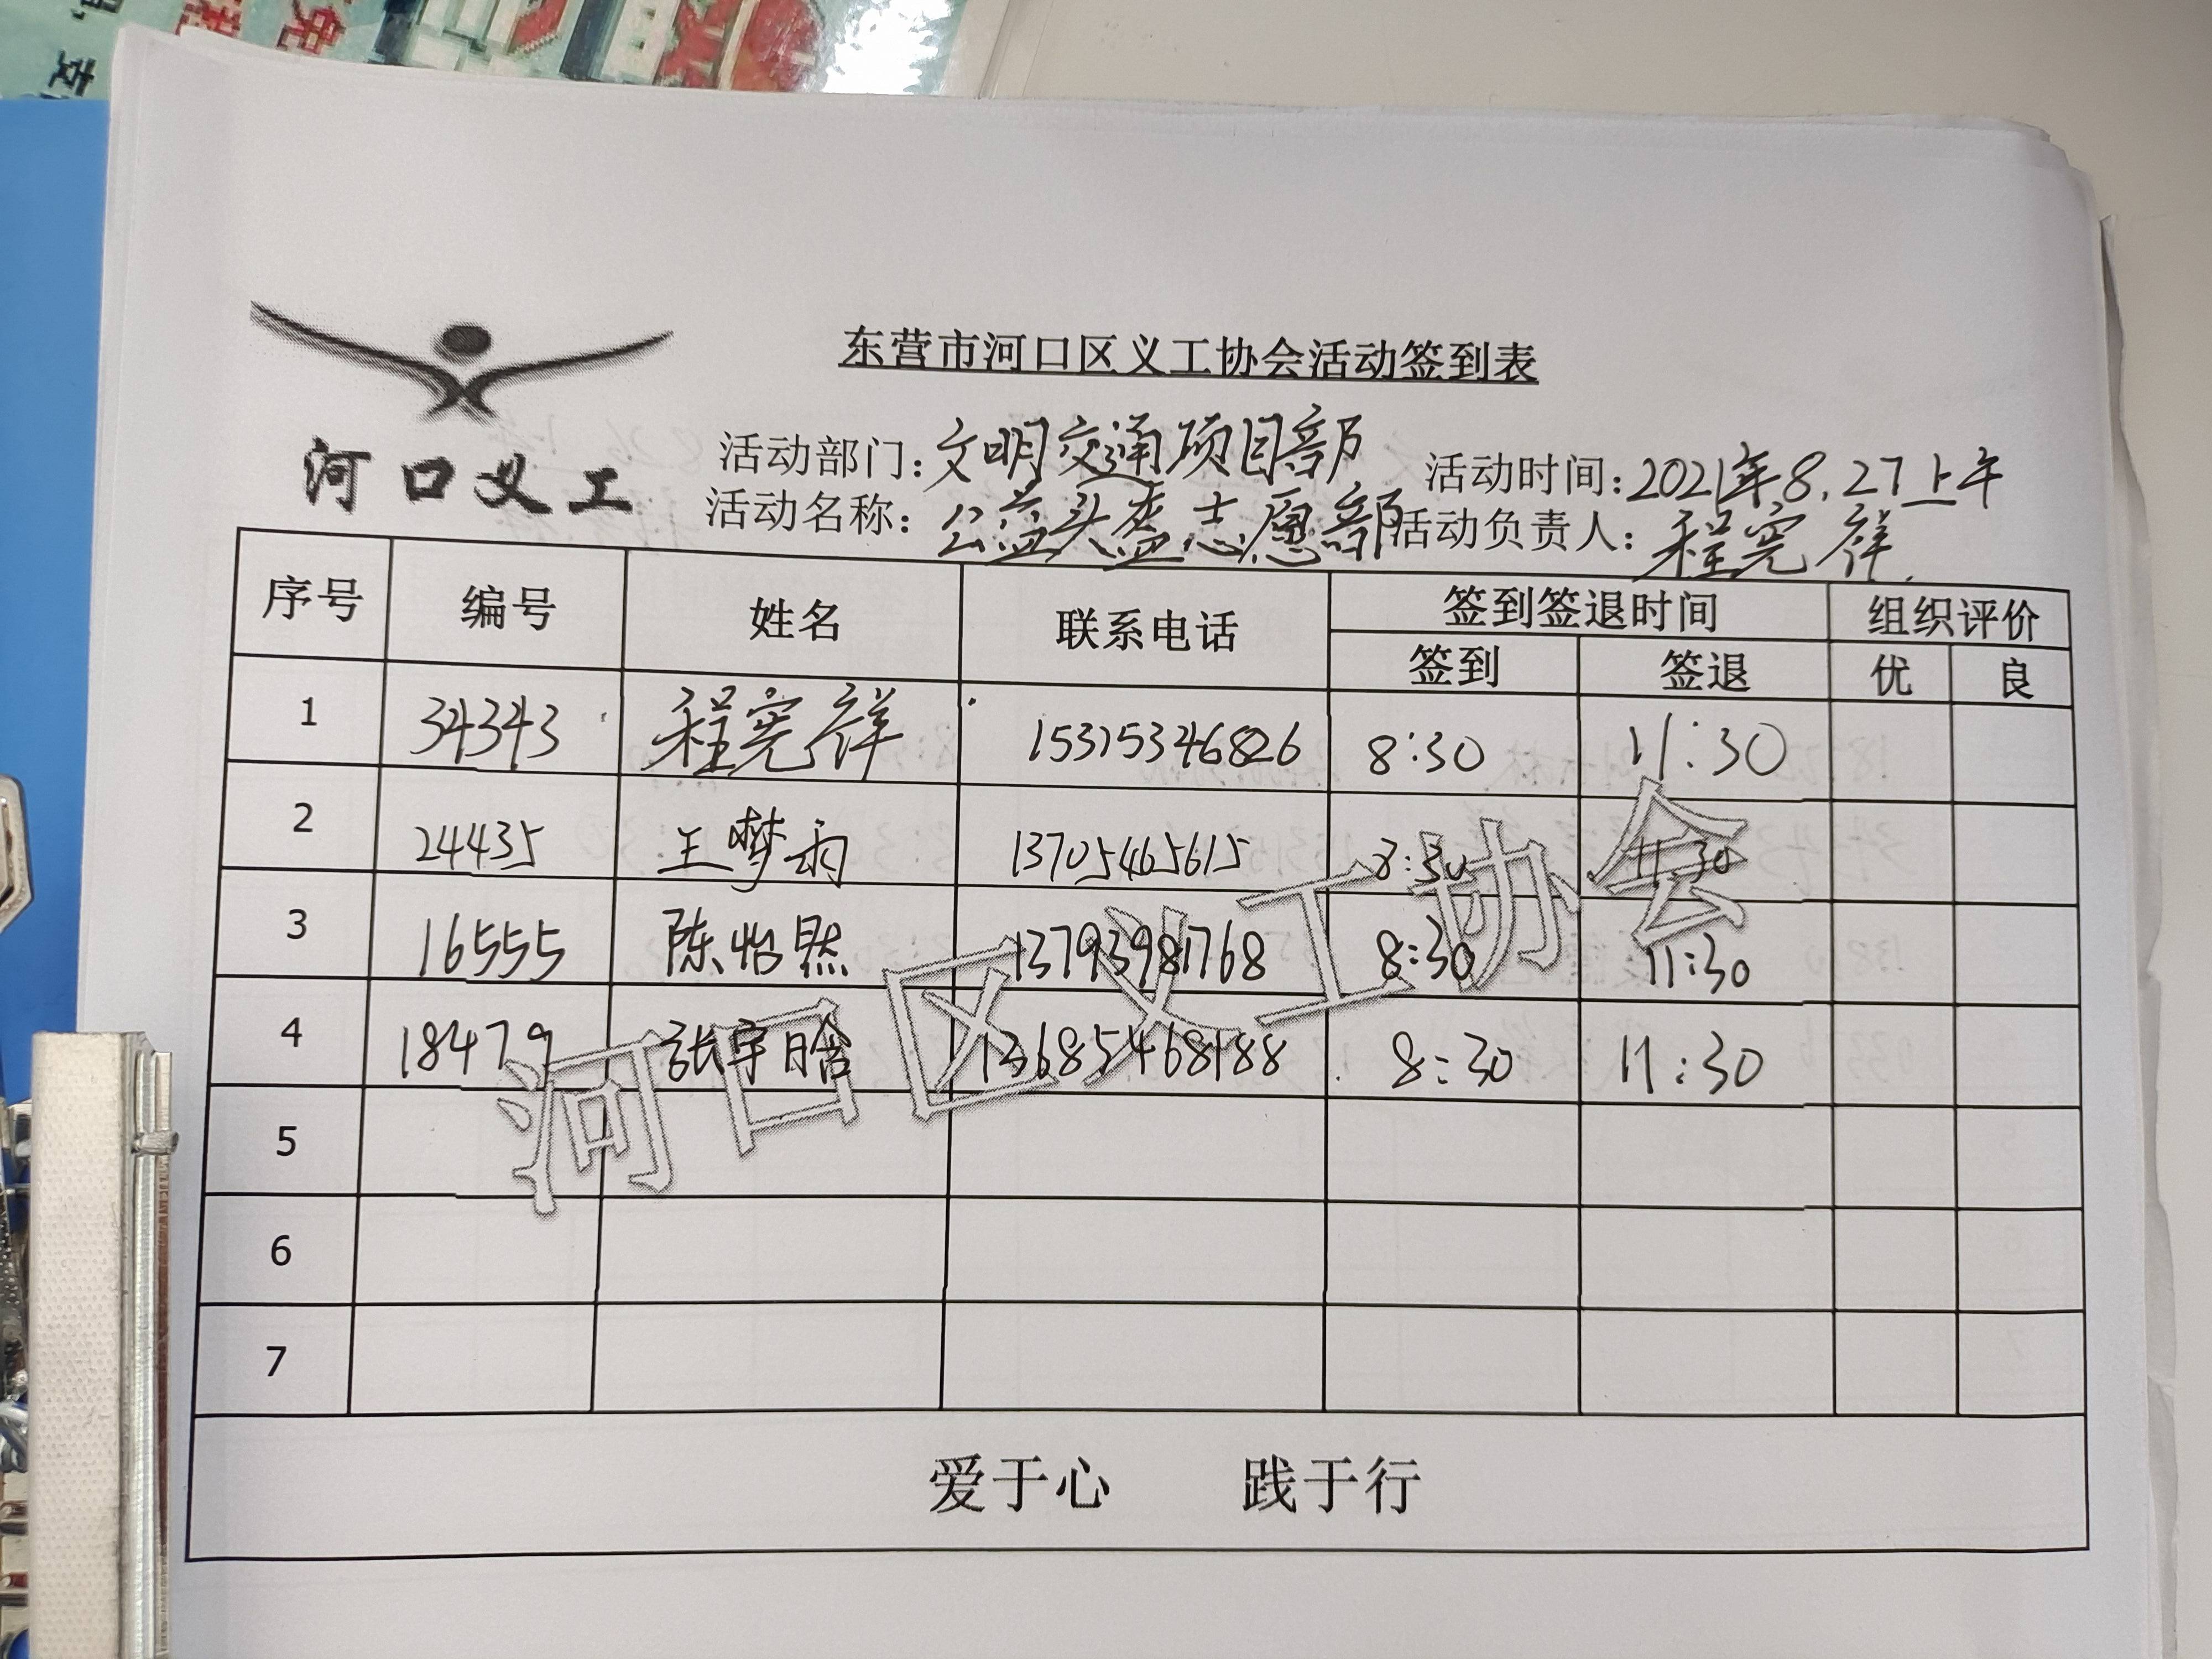 东营市河口区义工协会活动签到表
河口义工
活动部门：文明交通项目部 活动时间：2021年8.27上午
活动名称：公益头盔志愿部 活动负责人：程宪祥
序号 编号 姓名 联系电话 签到签退时间 组织评价
签到 签退 优 良
1 34343 程宪祥 15315346826 8:30 11:30
2 24435 王梦雨 13705465615 8:30 11:30
3 16555 陈怡然 13793981768 8:30 11:30
4 18479 张宇晗 13685468188 8:30 11:30
5
6
7
河口区义工协会
爱于心 践于行